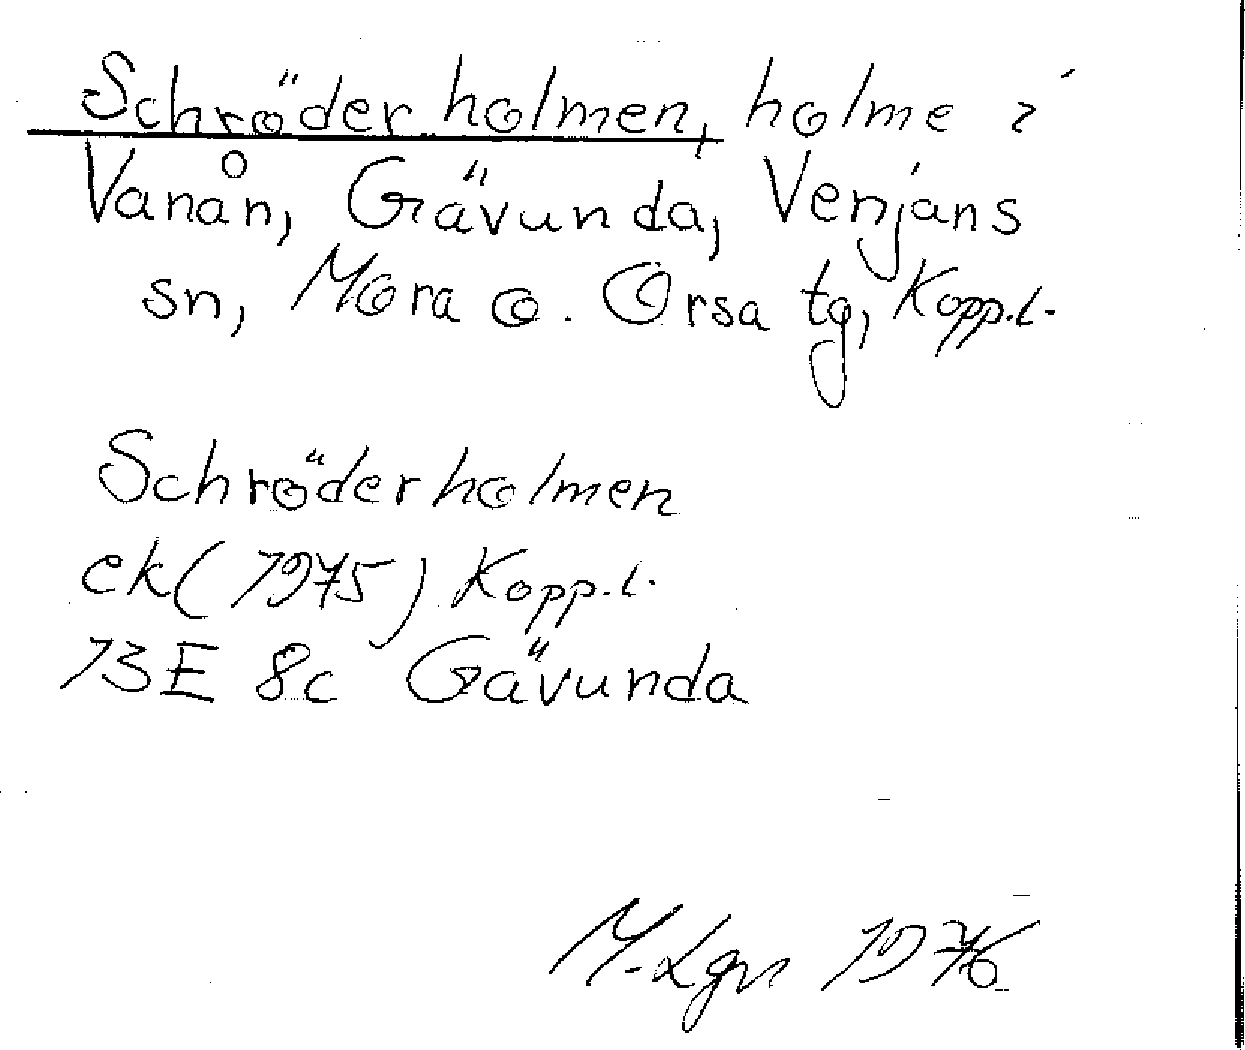 Schröderholmen, holme i
Vanån, Gävunda, Venjans
sn, Mora o. Orsa tg, Kopp.l.
Schröderholmen
ek (1975) Kopp.l.
13E 8c Gävunda
M. Lgn 1976